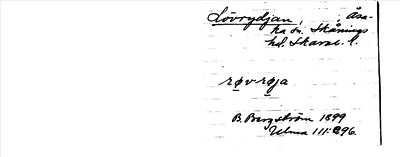 Lövrydjan, , Åsa-
ka sn. Skånings
hd. Skarab. l.
røv-røja
B. Bergström 1899
Ulma 111:296.